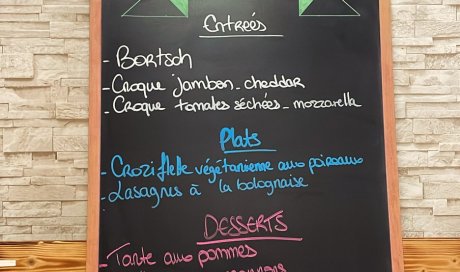 Entreés
- Bortsch
- Croque jambon - cheddar
- Croque tomates séchées - mozzarella
Plats
- Croziflette végétarienne aux poireaux
- Lasagnes à la bolognaise
DESSERTS
- Tarte aux pommes